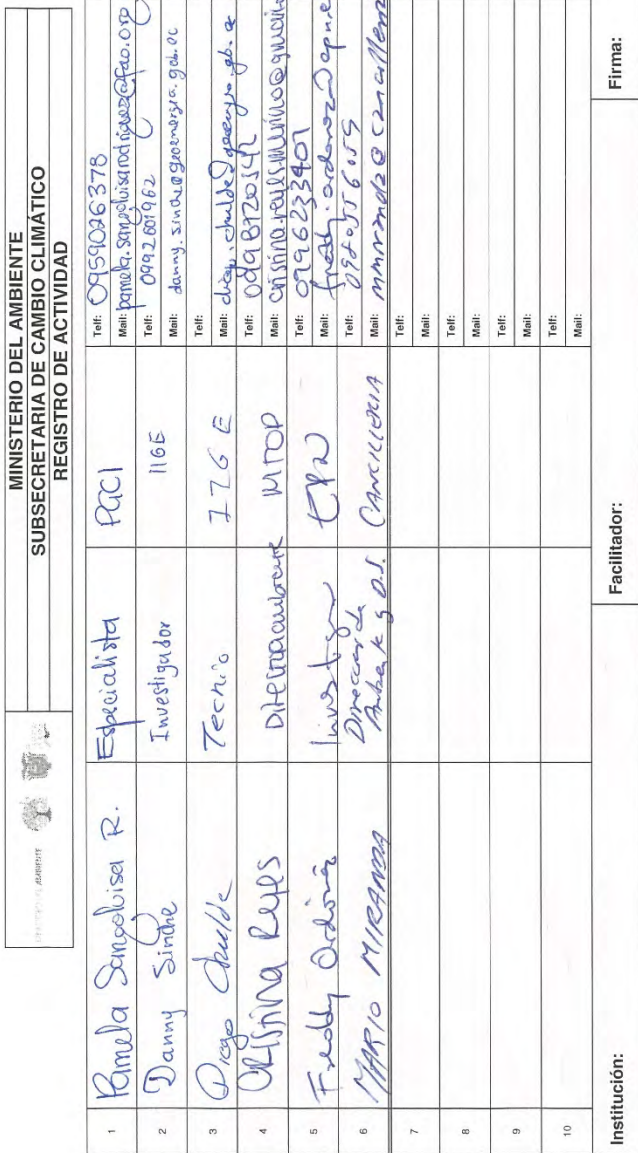 MINISTERIO DEL AMBIENTE
SUBSECRETARIA DE CAMBIO CLIMÁTICO
REGISTRO DE ACTIVIDAD
1 Pamela Sangoluisa R. Especialista PGCI Telf: 0959026378
Mail: pamela.sangoluisarodriguez@fao.org
2 Danny Sinche Investigador IIGE Telf: 0992601962
Mail: danny.sinche@geoenergia.gob.ec
3 Diego Chulde Tecnio IIGE Telf:
Mail: diego.chulde@geoenergia.gob.ec
4 Cristina Reyes MTOP Telf: 0998720542
Mail: cristina.reyes
5 Freddy Ordóñez Investigador EPN Telf: 0996233401
Mail: freddy.ordonez@epn.e
6 MARIO MIRANDA Dirección de
Ambiente y D.S. CANCILLERIA Telf:
Mail: mmiranda@cancilleria
7 Telf:
Mail:
8 Telf:
Mail:
9 Telf:
Mail:
10 Telf:
Mail:
Institución: Facilitador: Firma: